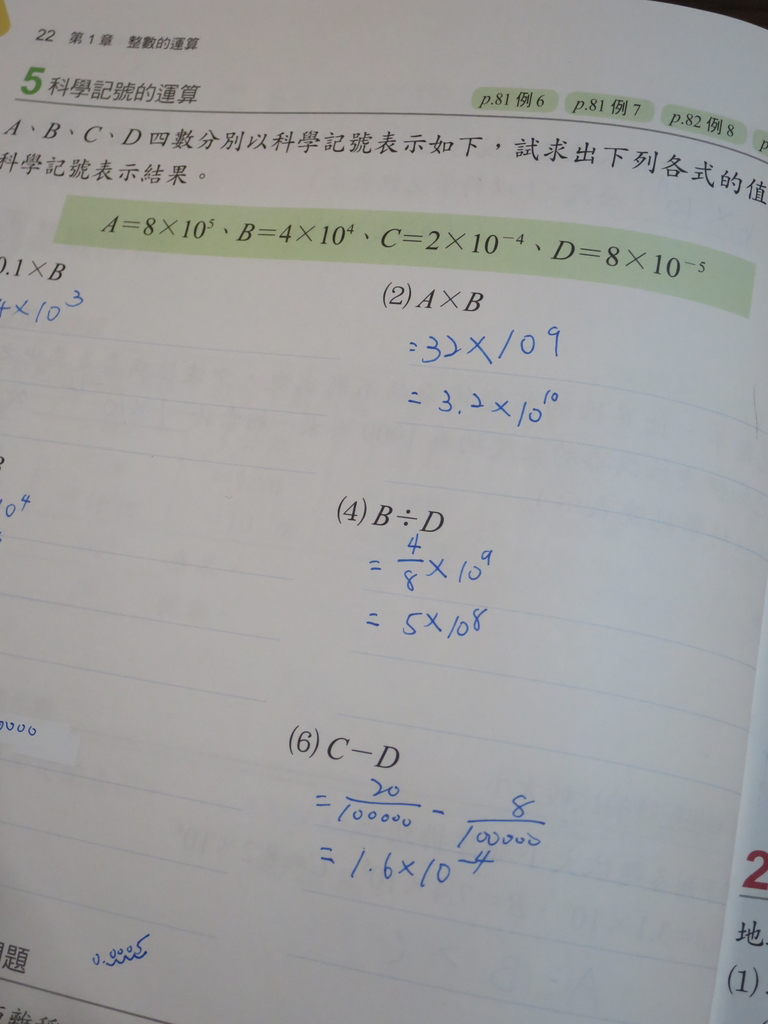 22 第1章 整數的運算
5 科學記號的運算
p.81 例6 p.81 例7 p.82 例8
A、B、C、D四數分別以科學記號表示如下，試求出下列各式的值
科學記號表示結果。
A=8×10⁵、B=4×10⁴、C=2×10⁻⁴、D=8×10⁻⁵
0.1×B
4×10³
(2) A×B
=32×10⁹
=3.2×10¹⁰
B
10⁴
(4) B÷D
=4/8×10⁹
=5×10⁸
0000
(6) C−D
=20/100000 - 8/100000
=1.6×10⁻⁴
2
地
(1)
題
距離